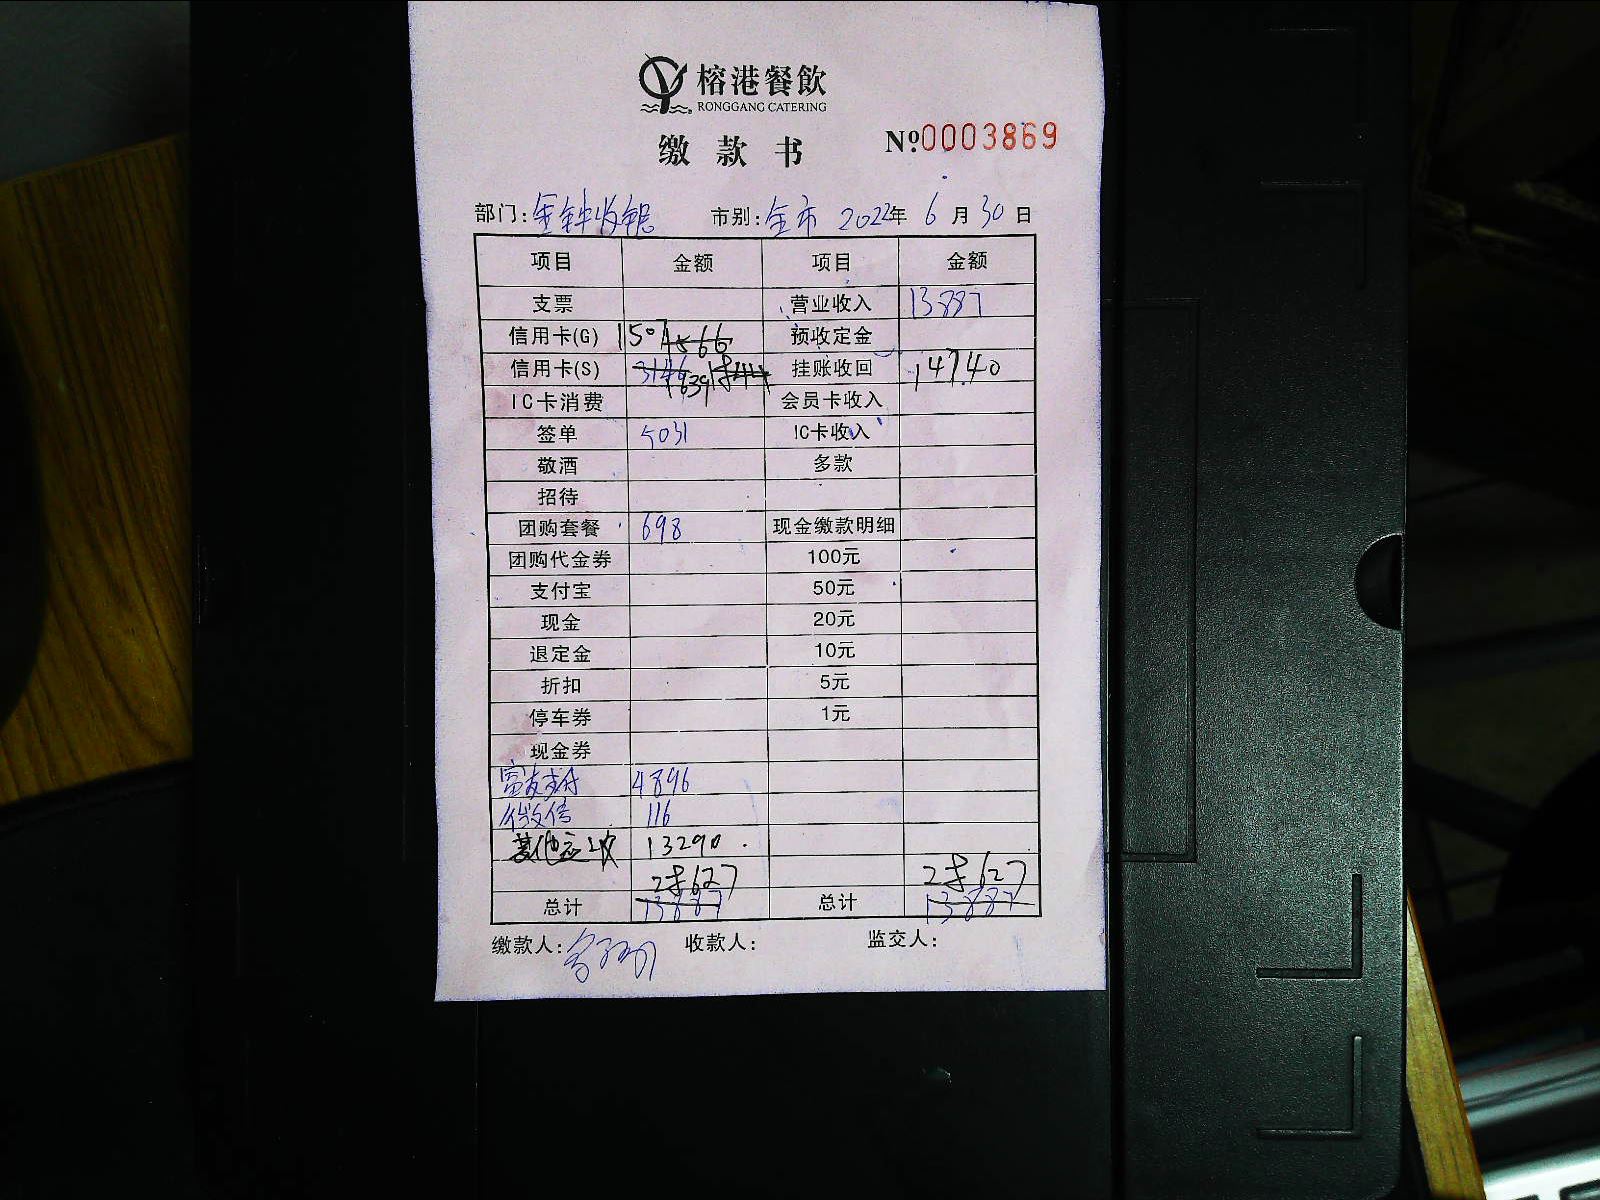 榕港餐飲
RONGGANG CATERING
缴款书
Nº:0003869
部门:金钟收银 市别:全市 2022年 6月30日
项目 金额 项目 金额
支票 营业收入 13887
信用卡(G) 1507 预收定金
信用卡(S) 3146 1639 挂账收回 14740
IC卡消费 会员卡收入
签单 5031 IC卡收入
敬酒 多款
招待
团购套餐 698 现金缴款明细
团购代金券 100元
支付宝 50元
现金 20元
退定金 10元
折扣 5元
停车券 1元
现金券
富友支付 4896
微信 116
其他应收 13290.
627 627
总计 13887 总计 13887
缴款人: 收款人: 监交人: